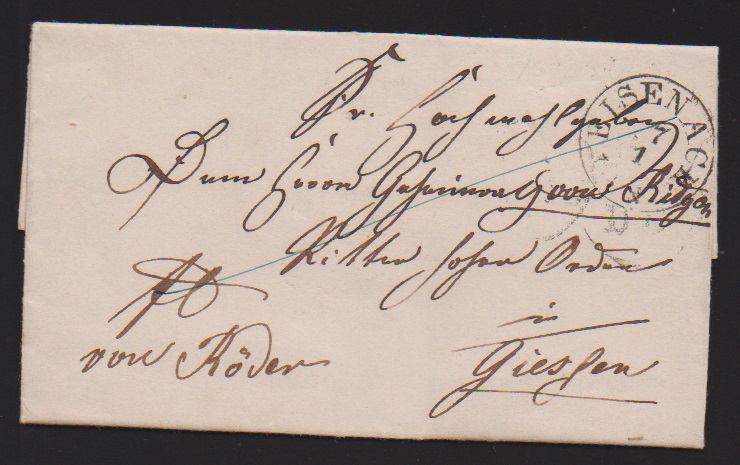 EISENACH
7
1
Sr. Hochwohlgeboren
Dem Herrn Geheimrath von Ritgen
Ritter hoher Orden
in
von Röder
Giessen